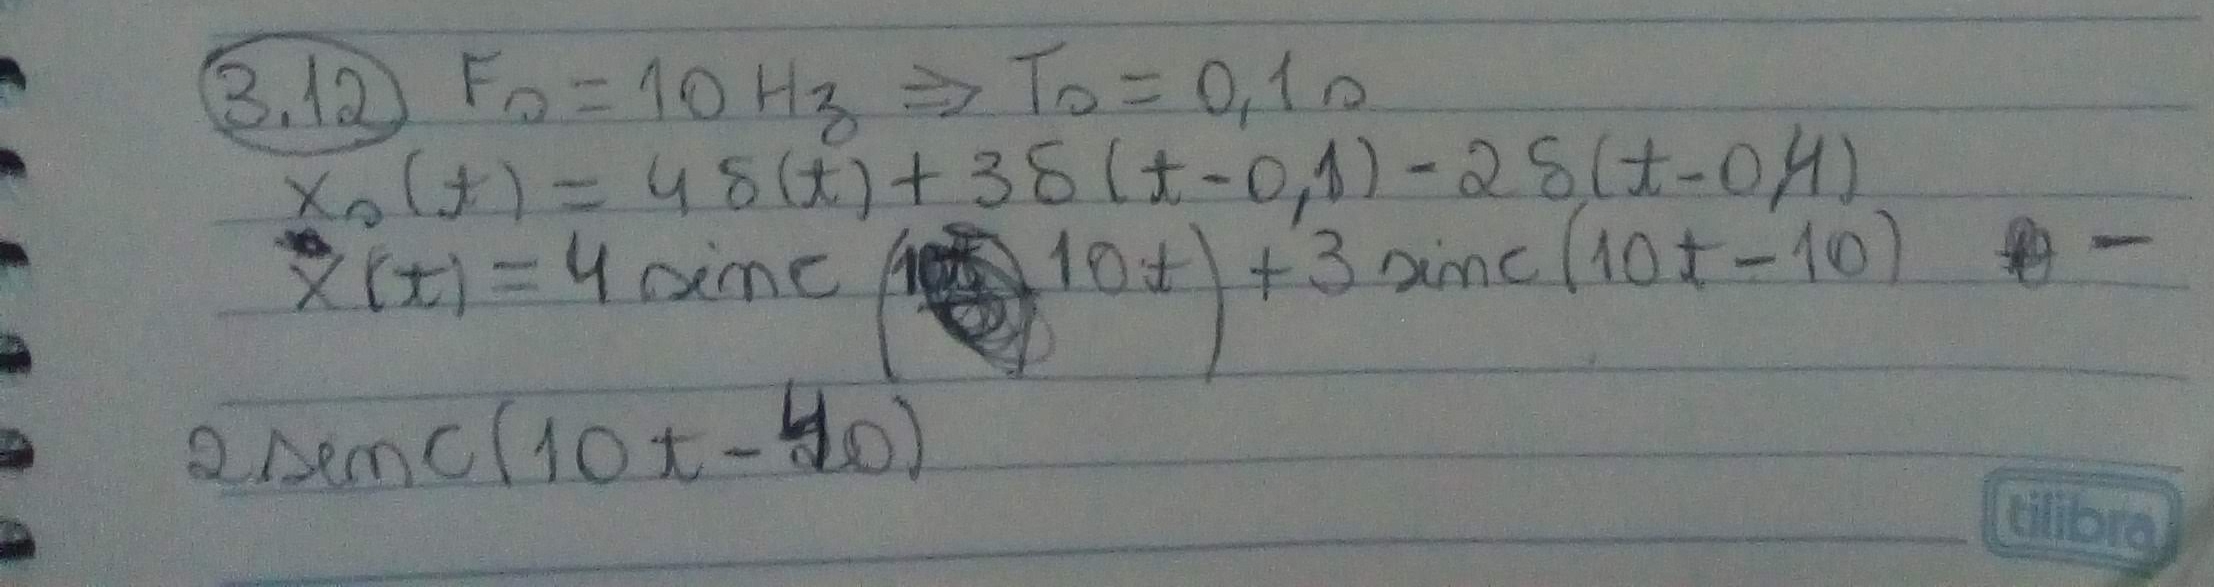 3.12 Fs = 10 Hz ⇒ Ts = 0,1 s
xs(t) = 4δ(t) + 3δ(t-0,1) - 2δ(t-0,4)
x(t) = 4 sinc (10t) + 3 sinc(10t-10) -
2 senc(10t-40)
tilibra